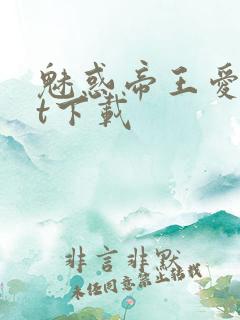 魅惑帝王愛
t下載
非言非默
未经同意禁止转载